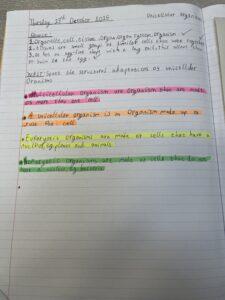 Thursday 23rd October 2025 Unicellular Organisms
1. Organelle, cell, tissue, Organ, Organ System, Organism
2. tissues are small groups of similar cells that work together
3. It has an egg-like shape with a long tail, this allows them
to swim to the egg. ✓
Unicellular Organisms
Multicellular Organism are Organism that are made
of more than one cell.
A Unicellular Organism is an Organism made up of
Just One cell.
Eukaryotic Organisms are made of cells that have a
nucleus, eg plants and animals
Prokaryotic Organisms are made of cells that do not
have a nucleus eg bacteria